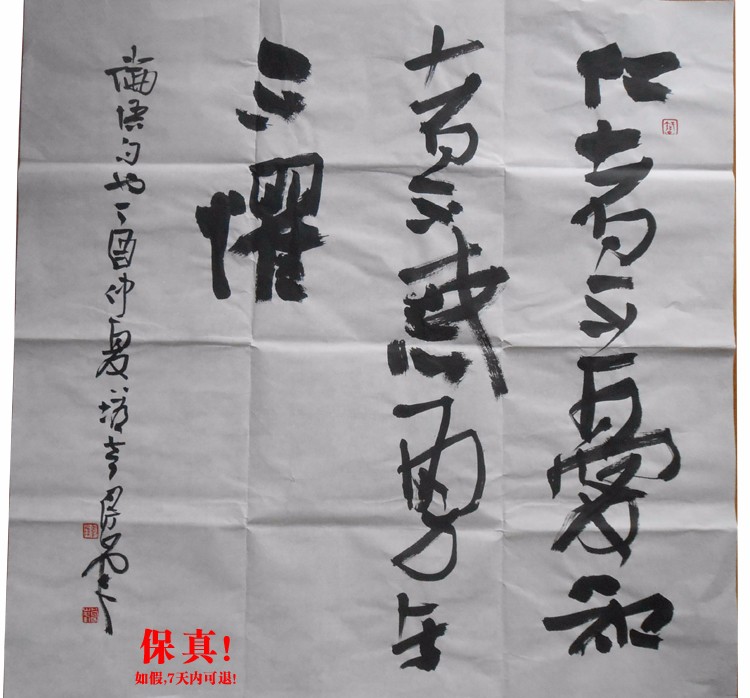 仁者不憂知
者不惑勇者
不懼
論語句也丁酉仲夏
保真!
如假,7天内可退!